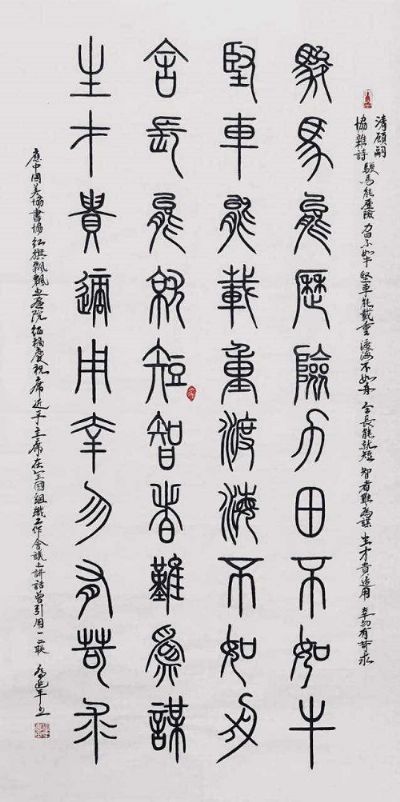 清顧嗣
協雜詩 駿馬能歷險 力田不如牛 堅車能載重 渡海不如舟 舍長能就短 智者難為謀 生才貴適用 幸勿有苛求
駿馬能歷險力田不如牛
堅車能載重渡海不如舟
舍長能就短智者難為謀
生才貴適用幸勿有苛求
應中国美協書協紅旗飄飄書畫院慶祝近平主席在全国組織工作會議上講話曾引用一二联